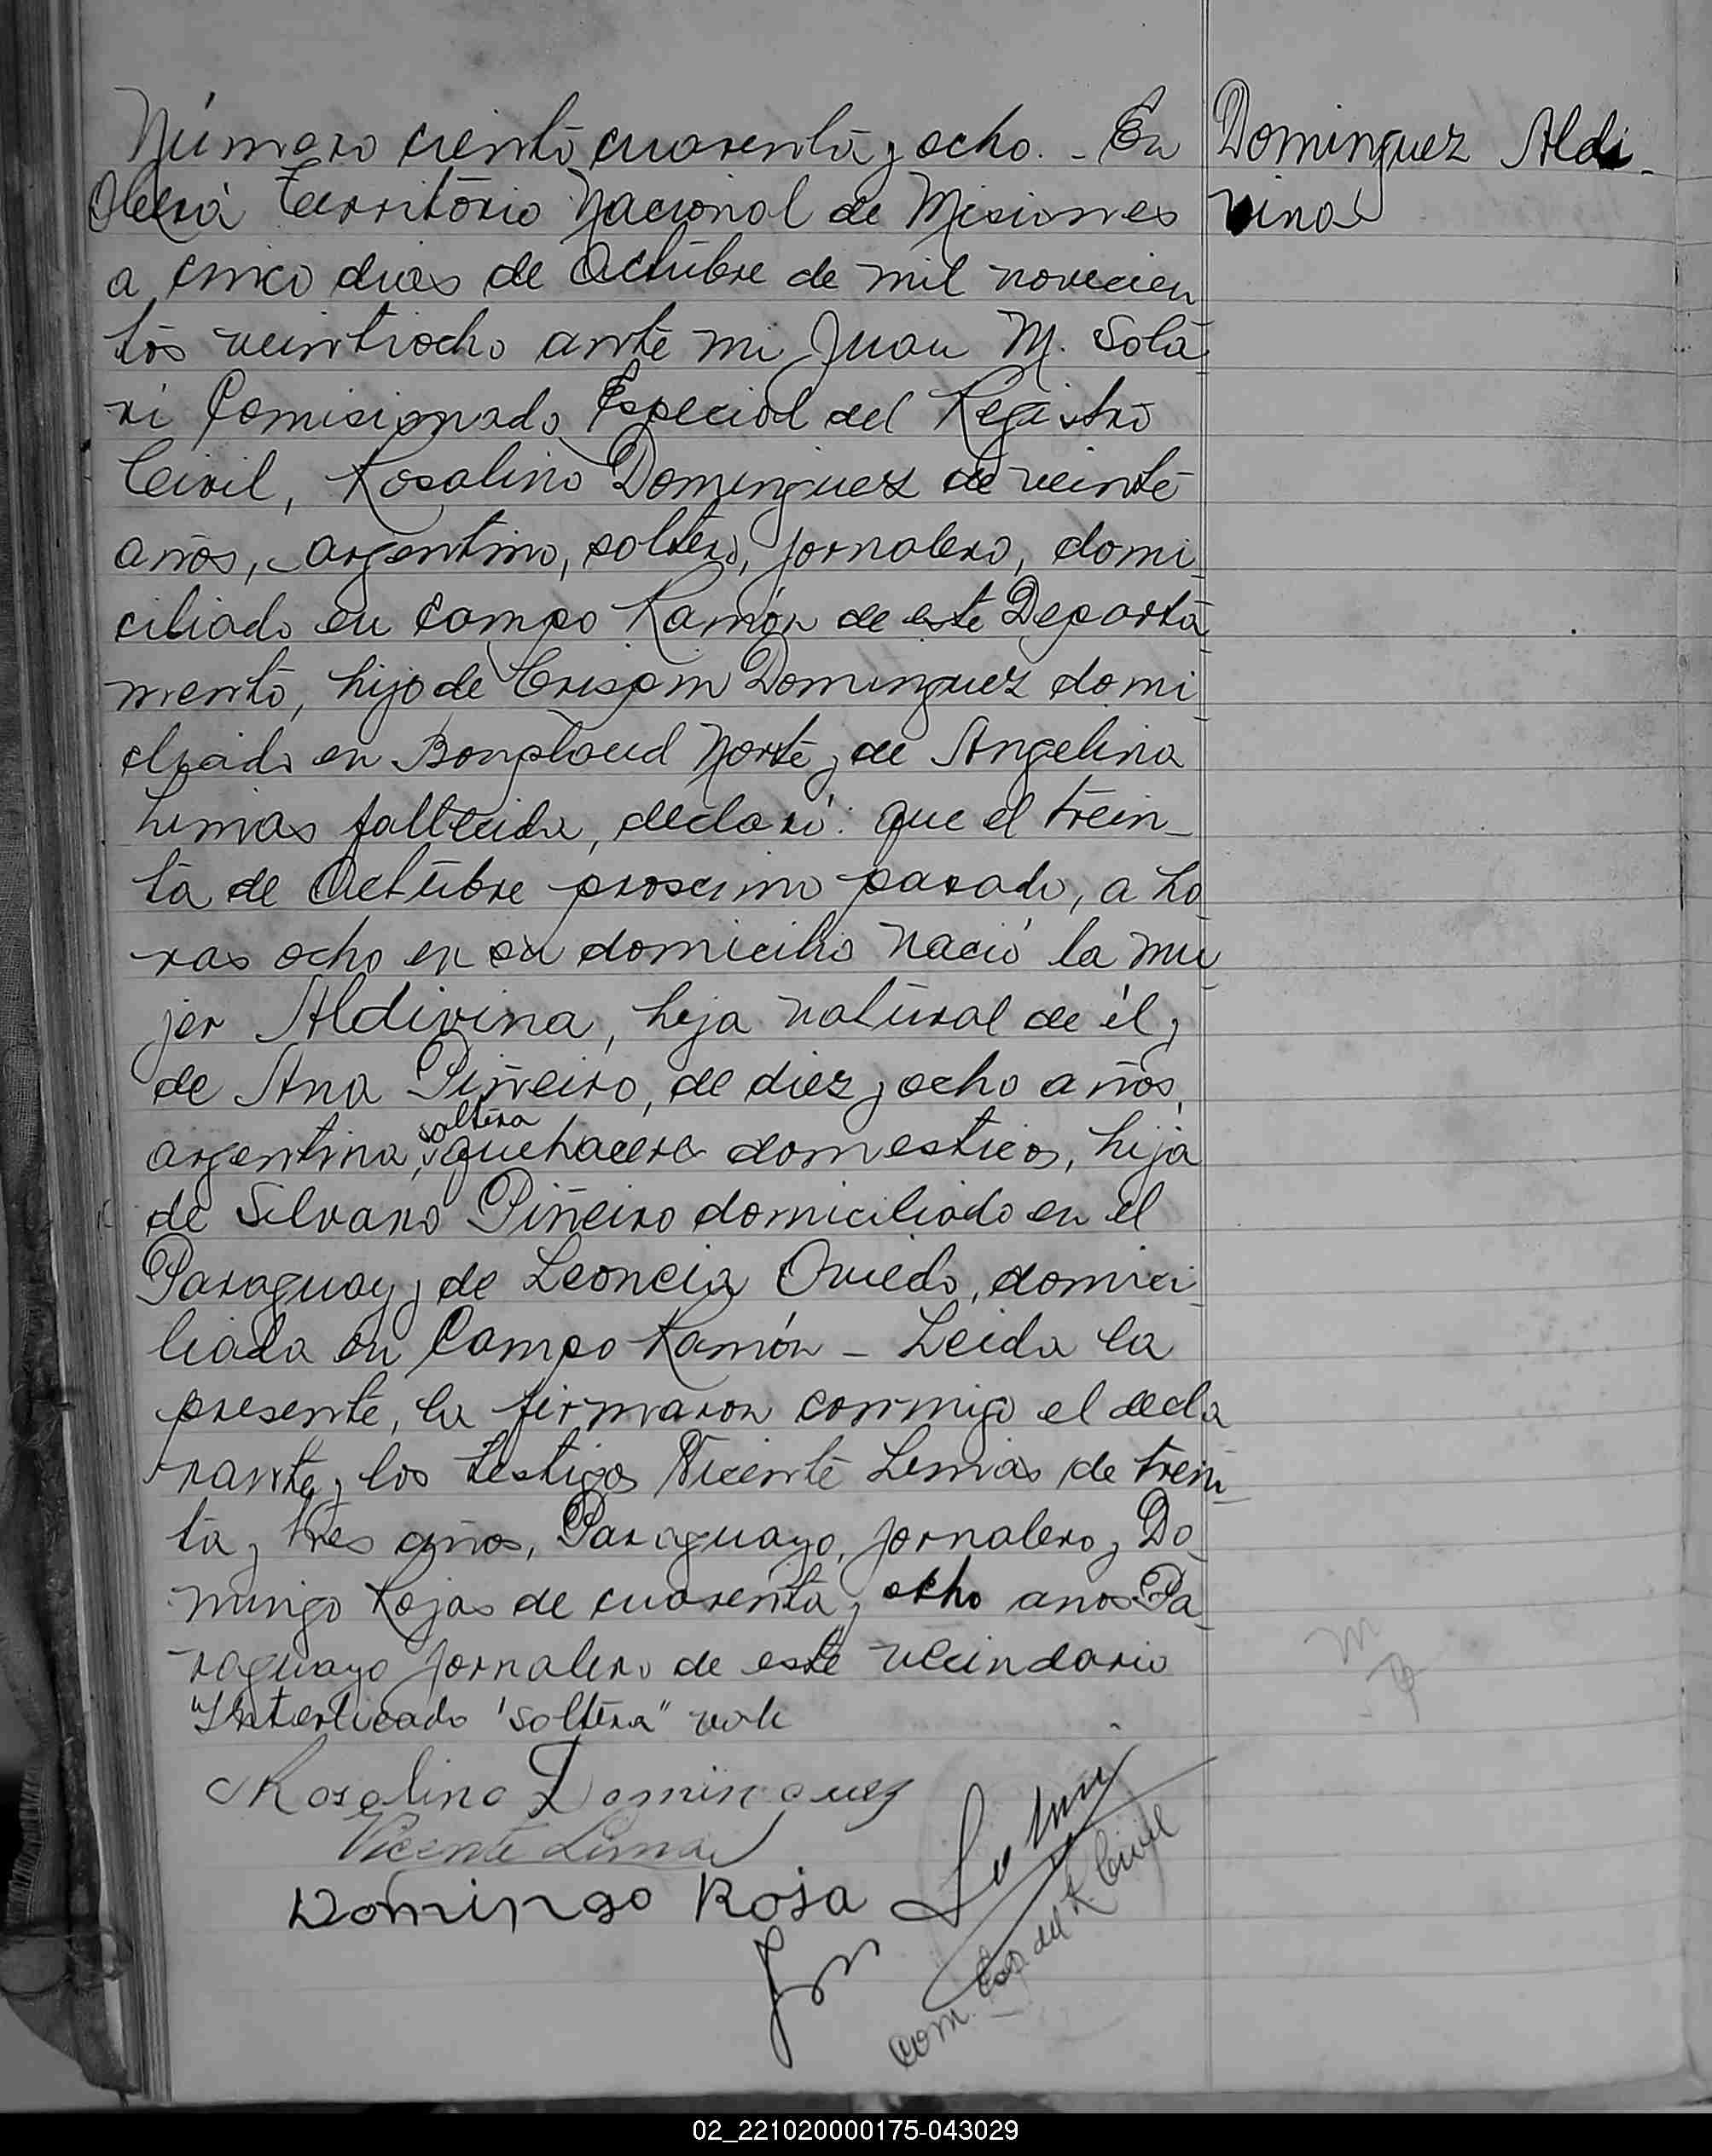 Número ciento cuarenta y ocho. - En
Oberá Territorio Nacional de Misiones
a cinco dias de Octubre de mil novecien
tos veintiocho ante mi Juan M. Sola
ri Comisionado Especial del Registro
Civil, Rosalino Dominguez de veinte
años, argentino, soltero, jornalero, domi
ciliado en Campo Ramón de este Departa
mento, hijo de Crispin Dominguez domi
cliado en Bonpland Norte y de Angelina
Limas fallecida, declaró: que el trein-
ta de Octubre proscimo pasado, a ho
ras ocho en su domicilio nació la mu
jer Aldivina, hija natural de él y
de Ana Piñeiro, de diez y ocho años,
argentina, soltera, quehaceres domesticos, hija
de Silvano Piñeiro domiciliado en el
Paraguay y de Leoncia Oviedo, domici
liada en Campo Ramón - Leida la
presente, la firmaron conmigo el decla
rante y los testigos Vicente Limas de trein
ta y tres años, Paraguayo, jornalero y Do
mingo Rojas de cuarenta y ocho anos Pa
raguayo jornalero de este vecindario
"Interlicado "soltera" vale
Rosalino Dominguez
Vicente Limas
Domingo Roja
Com. Esp. del R. Civil
Dominguez Aldi-
vina
02_221020000175-043029